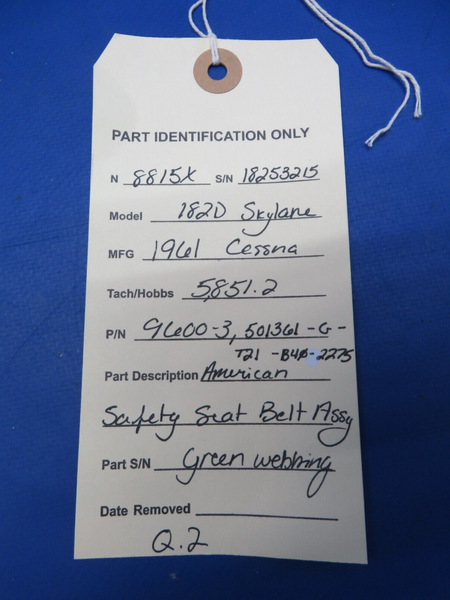 PART IDENTIFICATION ONLY
N 8815X S/N 18253215
Model 182D Skylane
MFG 1961 Cessna
Tach/Hobbs 5,851.2
P/N 9600-3, 501361-G-
T21 -B4ø-2275
Part Description American
Safety Seat Belt Assy
Part S/N Green webbing
Date Removed
Q.2